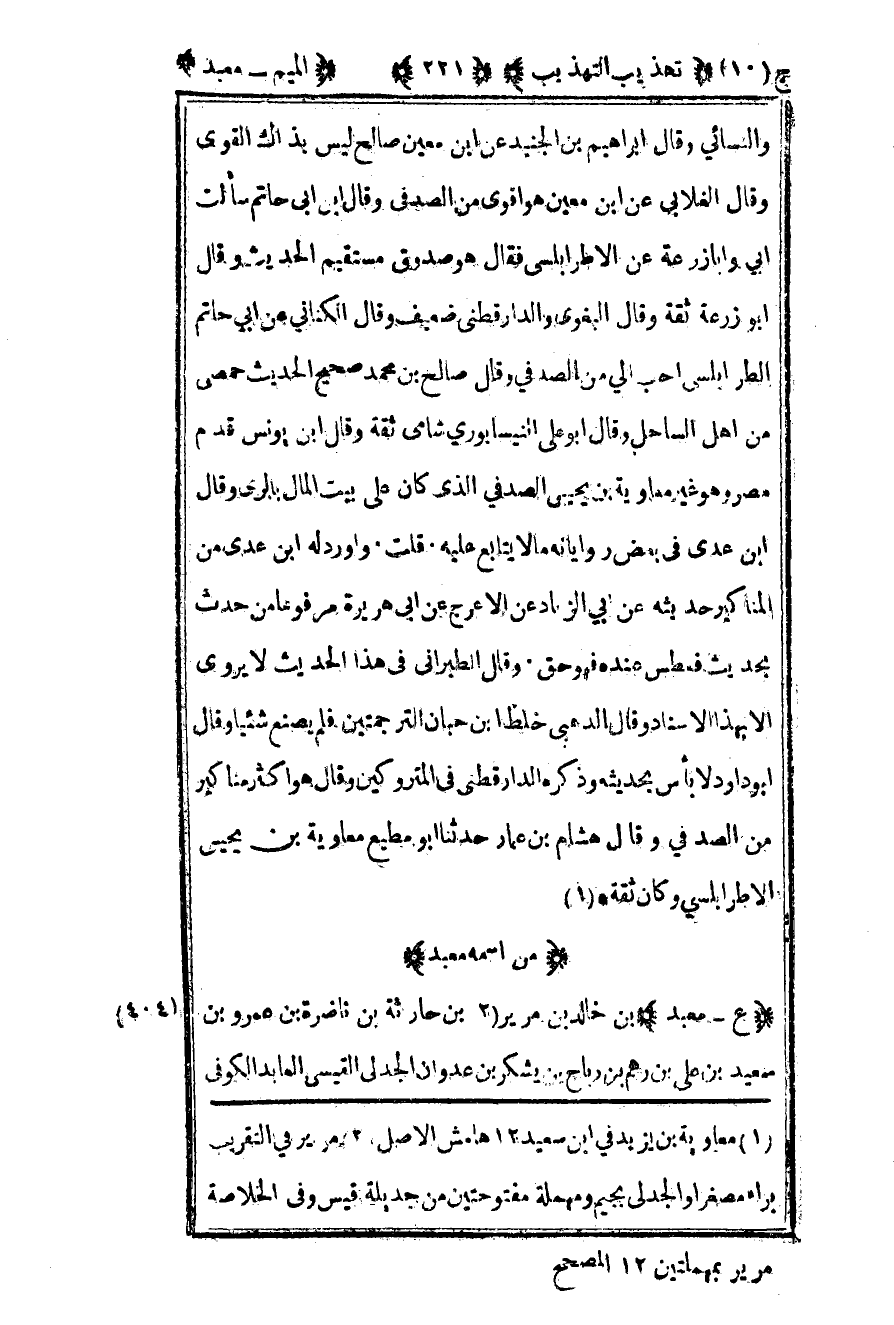 ج (١٠) ﴿ تهذيب التهذيب ﴾ ﴿ ٢٢١ ﴾ ﴿ الميم ـ معبد ﴾
والنسائي وقال ابراهيم بن الجنيد عن ابن معين صالح ليس بذاك القوى
وقال الغلابي عن ابن معين هو اقوى من الصدفى وقال ابن ابى حاتم سألت
ابي وابازرعة عن الاطرابلسى فقال هو صدوق مستقيم الحديث وقال
ابو زرعة ثقة وقال البغوى والدارقطنى ضعيف وقال الكنانى عن ابي حاتم
الطرابلسى احب الي من الصدفي وقال صالح بن محمد صحيح الحديث حمصى
من اهل الساحل وقال ابو على النيسابوري شامى ثقة وقال ابن يونس قدم
مصر وهو غير معاوية بن يحيى الصدفي الذى كان على بيت المال بالرى وقال
ابن عدى فى بعض رواياته مالا يتابع عليه ٠ قلت ٠ واورد له ابن عدى من
المناكير حديثه عن ابي الزناد عن الاعرج عن ابى هريرة مرفوعا من حدث
بحديث فعطس عنده فهو حق ٠ وقال الطبرانى فى هذا الحديث لا يروى
الا بهذا الاسناد وقال الذهبى خلط ابن حبان الترجمتين فلم يصنع شئيا وقال
ابوداود لا بأس بحديثه وذكره الدارقطنى فى المتروكين وقال هو اكثر مناكير
من الصدفي وقال هشام بن عمار حدثنا ابو مطيع معاوية بن يحيى
الاطرابلسي وكان ثقة * (١)
﴿ من اسمه معبد ﴾
﴿ ع ـ معبد ﴾ بن خالد بن مرير (٢ بن حارثة بن ناضرة بن عمرو بن (٤٠٤)
سعيد بن على بن رهم بن رباح بن يشكر بن عدوان الجدلى القيسى العابد الكوفى
(١) معاوية بن يزيد في ابن سعيد ١٢ هامش الاصل، ٢) مرير في التقريب
براء مصغرا والجدلى بجيم ومهملة مفتوحتين من جديلة قيس وفى الخلاصة
مرير بمهملتين ١٢ المصحح